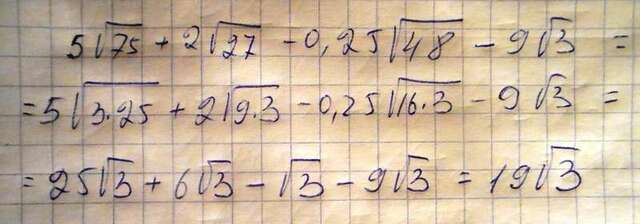 5√75 + 2√27 - 0,25√48 - 9√3 =
= 5√3·25 + 2√9·3 - 0,25√16·3 - 9√3 =
= 25√3 + 6√3 - √3 - 9√3 = 19√3